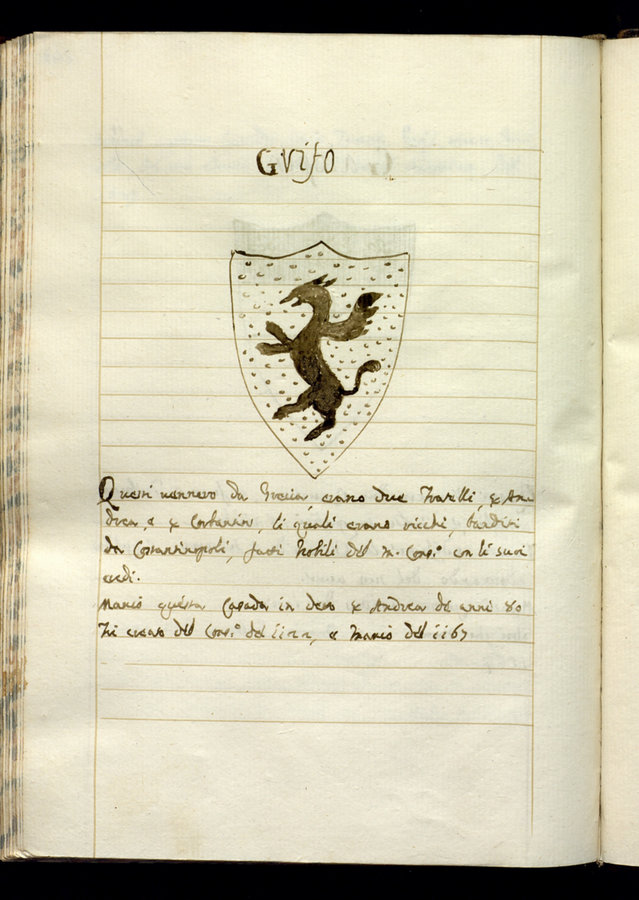 Grifo
Questi vennero da Grecia, erano due Fratelli, & An-
drea, e & Costantin, li quali erano ricchi, banditi
da Costantinopoli, fatti Nobili del M. Cons.º con li suoi
eredi.
Mancò questa Casada in detto & Andrea de anni 80
Fù creato del Cons.º del, e mancò del 1167